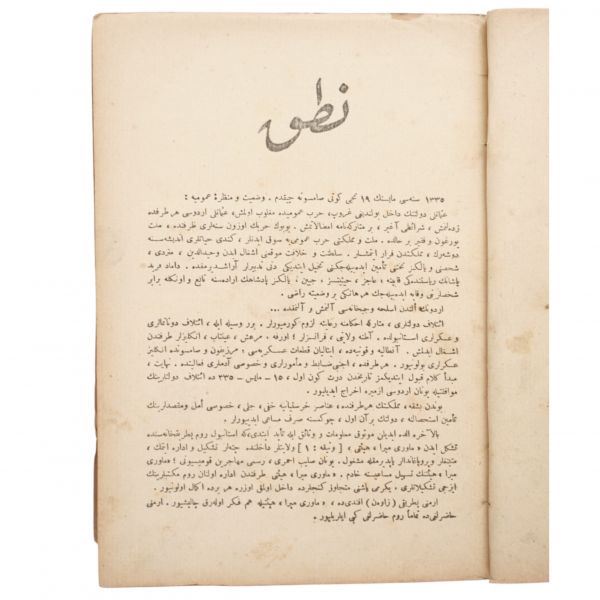 نطق
١٣٣٥ سنه‌سی مایسنك ١٩ نجی كونی صامسونه چیقدم . وضعیت و منظرۀ عمومیه :
عثمانلی دولتنك داخل بولندیغی غروپ، حرب عمومیده مغلوب اولمش، عثمانلی اردوسی هر طرفده
زده‌لنمش ، شرائطی آغیر ، بر متاركه‌نامه امضالانمش . بویوك حربك اوزون سنه‌لری ظرفنده ، ملت
یورغون و فقیر بر حالده . ملت و مملكتی حرب عمومی‌یه سوق ایدنلر ، كندی حیاتلری اندیشه‌سنه
دوشه‌رك ، مملكتدن فرار ایتمشلر . سلطنت و خلافت موقعنی اشغال ایدن وحیدالدین ، متردی ،
شخصنی و یالكز تختنی تأمین ایده‌بیله‌جكنی تخیل ایتدیكی دنی تدبیرلر آراشدیرمقده . داماد فرید
پاشانك ریاستنده‌كی قابینه ، عاجز ، حیثیتسز ، جبین ، یالكز پادشاهك اراده‌سنه تابع و اونكله برابر
شخصلرینی وقایه ایده‌بیله‌جك هر هانكی بر وضعیته راضی .
اردونك ألندن اسلحه و جبخانه‌سی آلنمش و آلنمقده ...
ائتلاف دولتلری ، متاركه احكامنه رعایته لزوم كورمیورلر . برر وسیله ایله ، ائتلاف دونانمالری
و عسكرلری استانبولده . آطنه ولایتی ، فرانسزلر ؛ اورفه ، مرعش ، عینتاب ، انكلیزلر طرفندن
اشغال ایدلمش . آنطالیه و قونیه‌ده ، ایتالیان قطعات عسكریه‌سی ؛ مرزیفون و صامسونده انكلیز
عسكرلری بولونیور . هر طرفده ، اجنبی ضابط و مأمورلری و خصوصی آدملری فعالیتده . نهایت ،
مبدأ كلام قبول ایتدیكمز تاریخدن درت كون اول ، ١٥ - مایس - ٣٣٥ ده ائتلاف دولتلرینك
موافقتیله یونان اردوسی ازمیره اخراج ایدیلیور .
بوندن بشقه ، مملكتك هر طرفنده ، عناصر خرستیانیه خفی ، جلی ، خصوصی أمل و مقصدلرینك
تأمین استحصالنه ، دولتك بر آن اول ، چوكمسنه صرف مساعی ایدییورلر .
بالآخره الده ایدیلن موثوق معلومات و وثائق ایله تأید ایتدی‌كه، استانبول روم پطریقخانه‌سنده
تشكل ایدن « ماوری میرا ، هیئتی » [ وثیقه : ١ ] ولایتلر داخلنده چته‌لر تشكیل و اداره ایتمك ،
متینغلر و پروپاغاندالر یاپدیرمقله مشغول . یونان صلیب احمری ، رسمی مهاجرین قومیسیونی ؛ « ماوری
میرا ، هیئتنك تسهیل مساعیسنه خادم . « ماوری میرا ، هیئتی طرفندن اداره اولنان روم مكتبلرینك
ایزجی تشكیلاتلری ، یكرمی یاشنی متجاوز كنجلرده داخل اولمق اوزره هر یرده اكمال اولونیور .
ارمنی پطریقی ( زاوه‌ن ) افندی‌ده ، « ماوری میرا ، هیئتیله هم فكر اوله‌رق چالیشیور . ارمنی
حاضرلغی‌ده تماماً روم حاضرلغی كبی ایلریلییور .